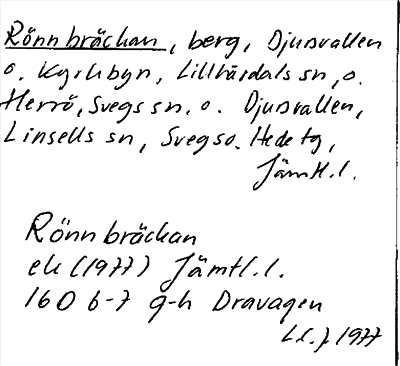 Rönnbräckan, berg, Djursvallen
o. Kyrkbyn, Lillhärdals sn, o.
Herrö, Svegs sn. o. Djursvallen,
Linsells sn, Sveg so. Hede tg,
Jämtl.l.
Rönnbräckan
ek (1977) Jämtl.l.
160 6-7 g-h Dravagen
1977